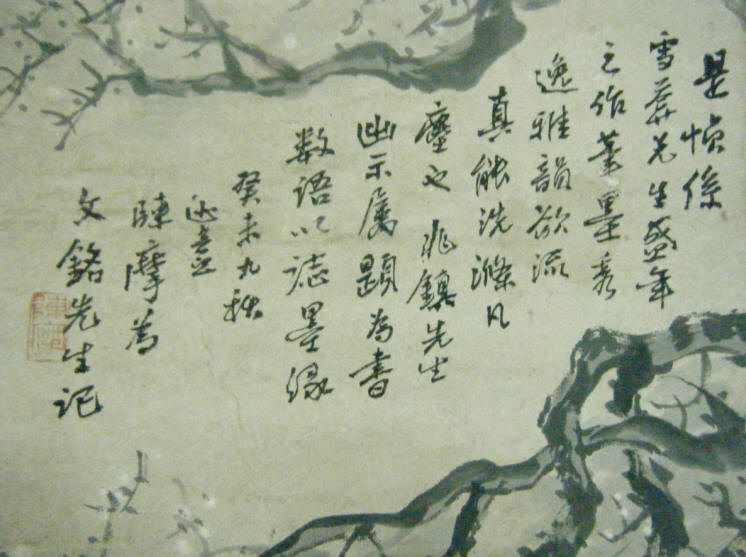 是幀係
雪葊先生盛年
之作筆墨秀
逸雅韻欲流
真能洗滌凡
塵也兆鎮先生
出示屬題為書
数語以誌墨缘
癸未九秋
迦盦
陳摩為
文銘先生記